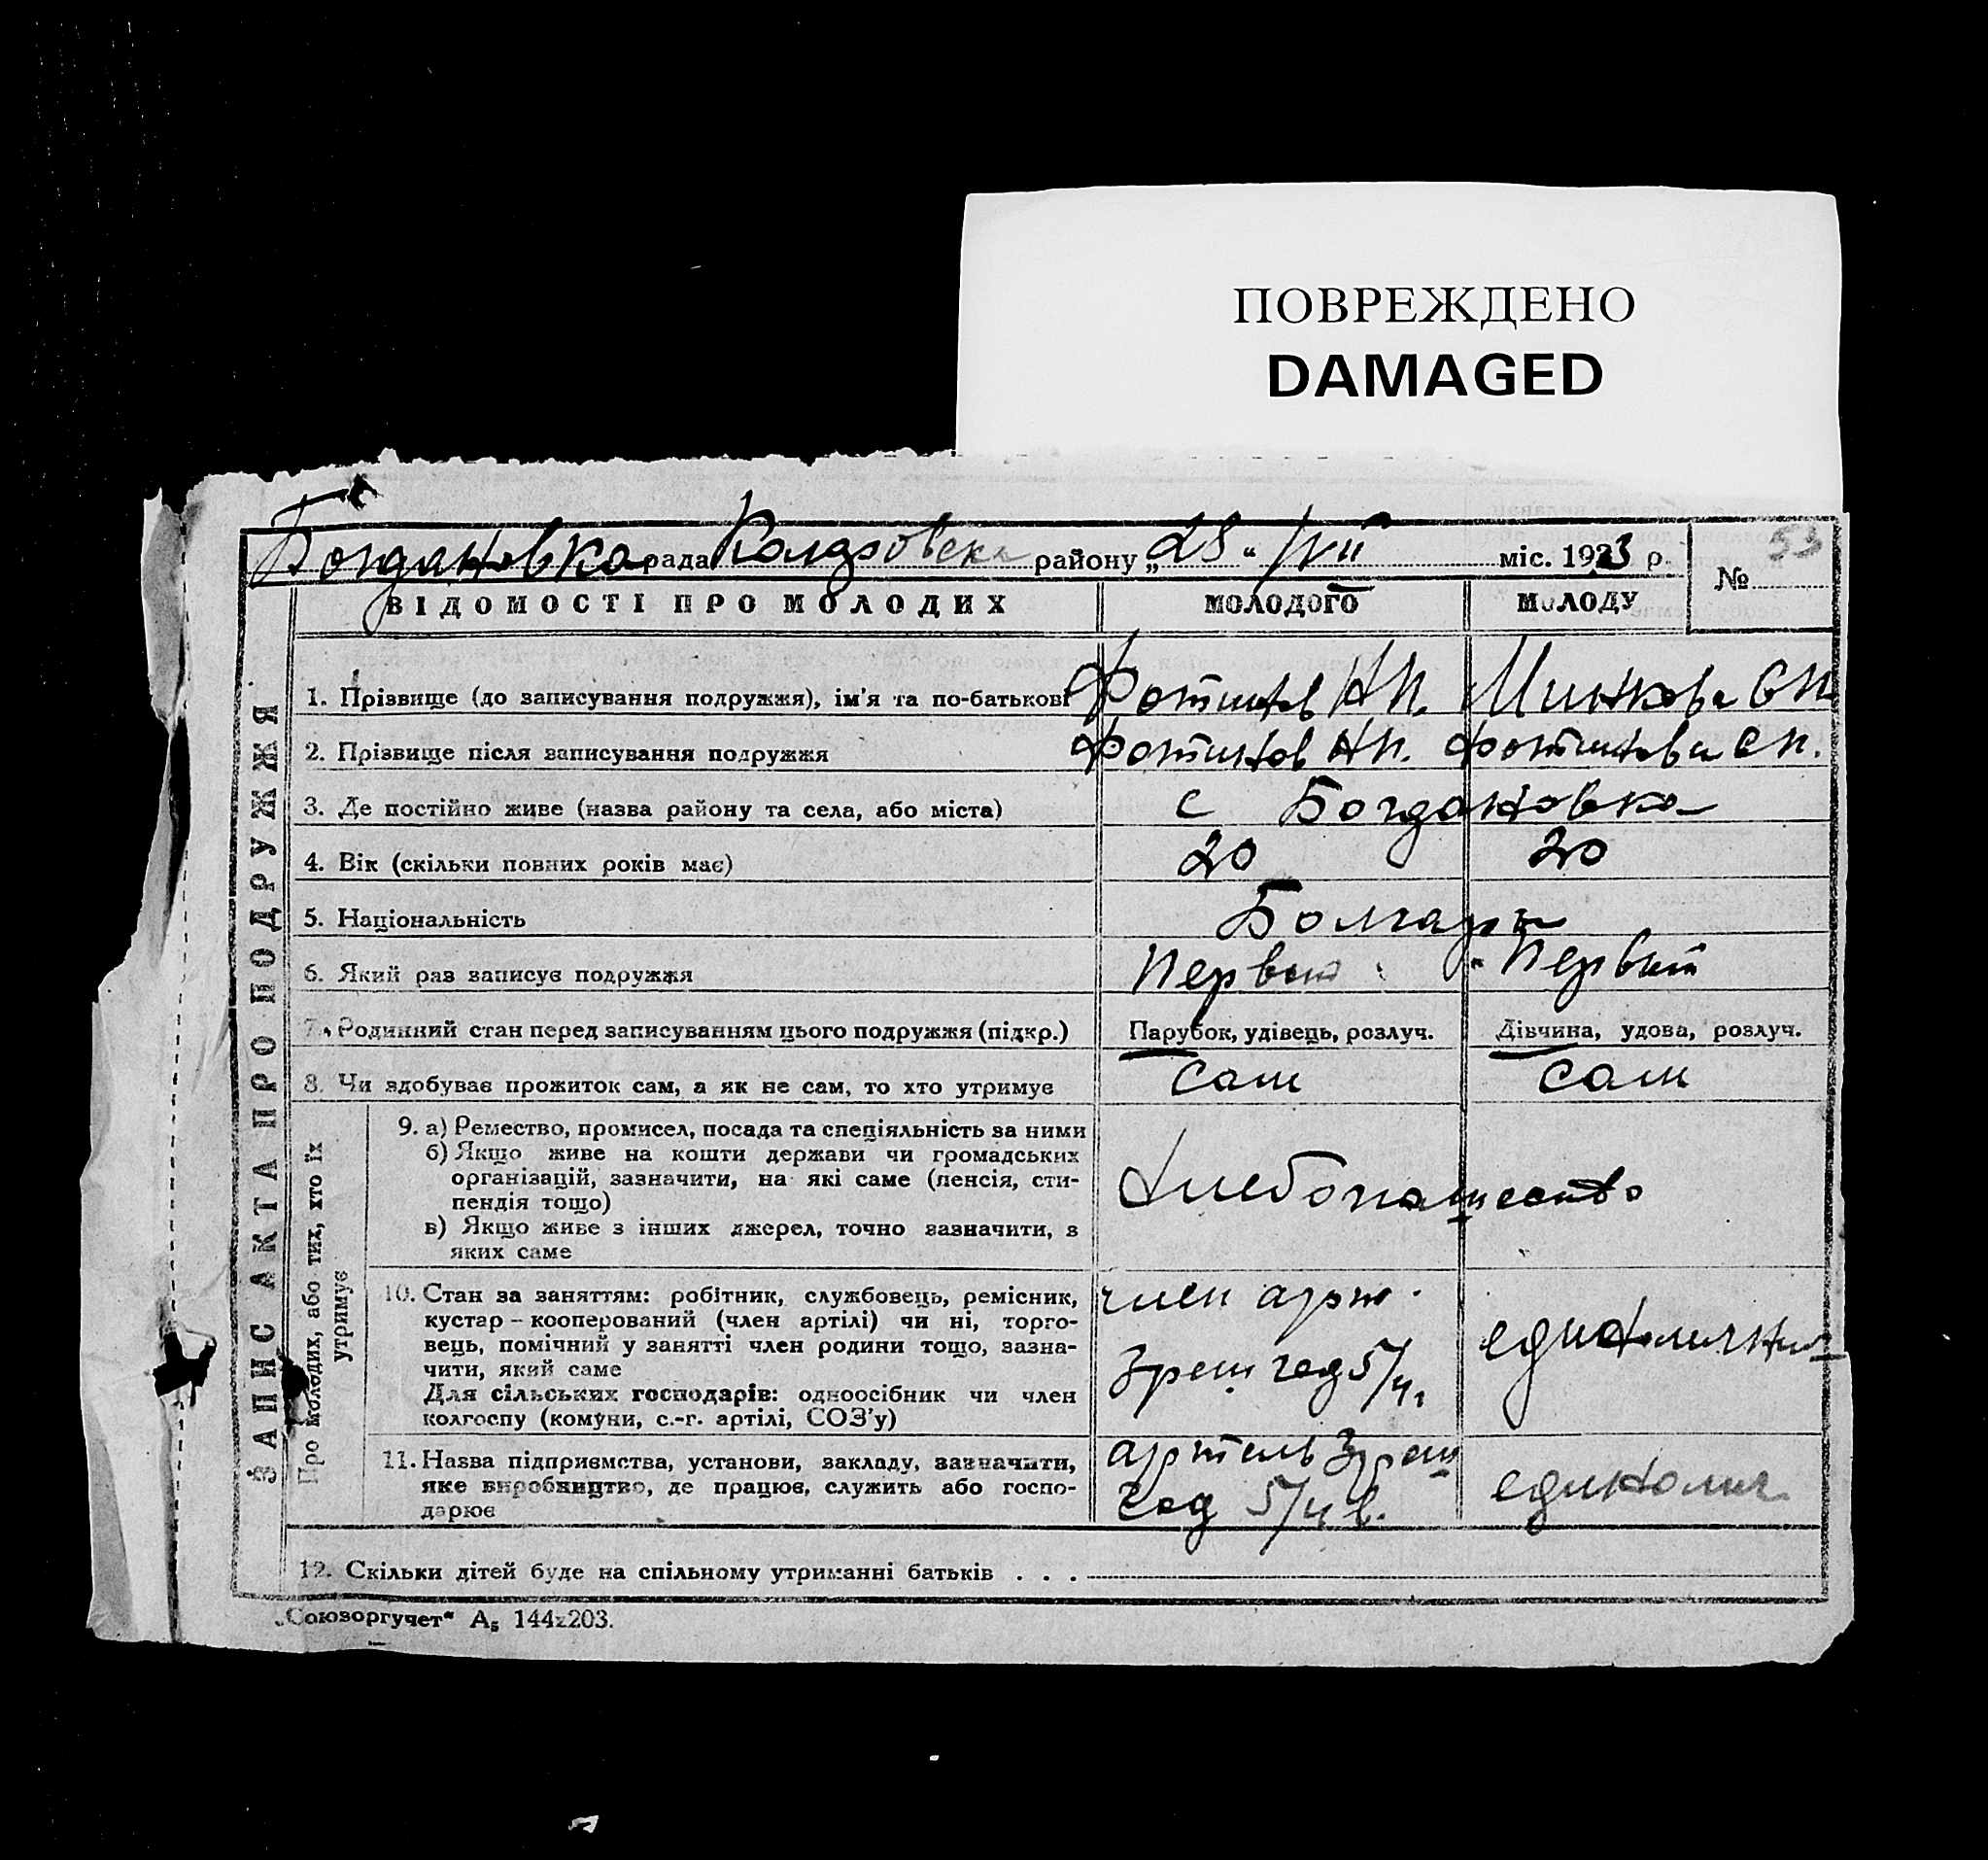 ПОВРЕЖДЕНО
DAMAGED
Богдановка рада району „28“ VII міс. 1933 р.
№ 53
ЗАПИС АКТА ПРО ПОДРУЖЖЯ
ВІДОМОСТІ ПРО МОЛОДИХ МОЛОДОГО МОЛОДУ
1. Прізвище (до записування подружжя), ім'я та по-батькові Фотинов Н П. Минкова С П.
2. Прізвище після записування подружжя Фотинов Н П. Фотинова С П.
3. Де постійно живе (назва району та села, або міста) с Богдановка
4. Вік (скільки повних років має) 20 20
5. Національність Болгары
6. Який раз записує подружжя Первый Первый
7. Родинний стан перед записуванням цього подружжя (підкр.) Парубок, удівець, розлуч. Дівчина, удова, розлуч.
8. Чи здобуває прожиток сам, а як не сам, то хто утримує сам сам
Про молодих, або тих, хто їх
утримує
9. а) Ремество, промисел, посада та спеціяльність за ними
б) Якщо живе на кошти держави чи громадських
організацій, зазначити, на які саме (пенсія, сти-
пендія тощо)
в) Якщо живе з інших джерел, точно зазначити, з
яких саме
Хлебопашество
10. Стан за заняттям: робітник, службовець, ремісник,
кустар – кооперований (член артілі) чи ні, торго-
вець, помічний у занятті член родини тощо, зазна-
чити, який саме
Для сільських господарів: одноосібник чи член
колгоспу (комуни, с.-г. артілі, СОЗ'у)
член арт.
Зреш год 5/4
единолични
11. Назва підприємства, установи, закладу, зазначити,
яке виробництво, де працює, служить або госпо-
дарює
артель Зреш
год 5/4 в.
единолич
12. Скільки дітей буде на спільному утриманні батьків . . .
„Союзоргучет“ А₅ 144z203.